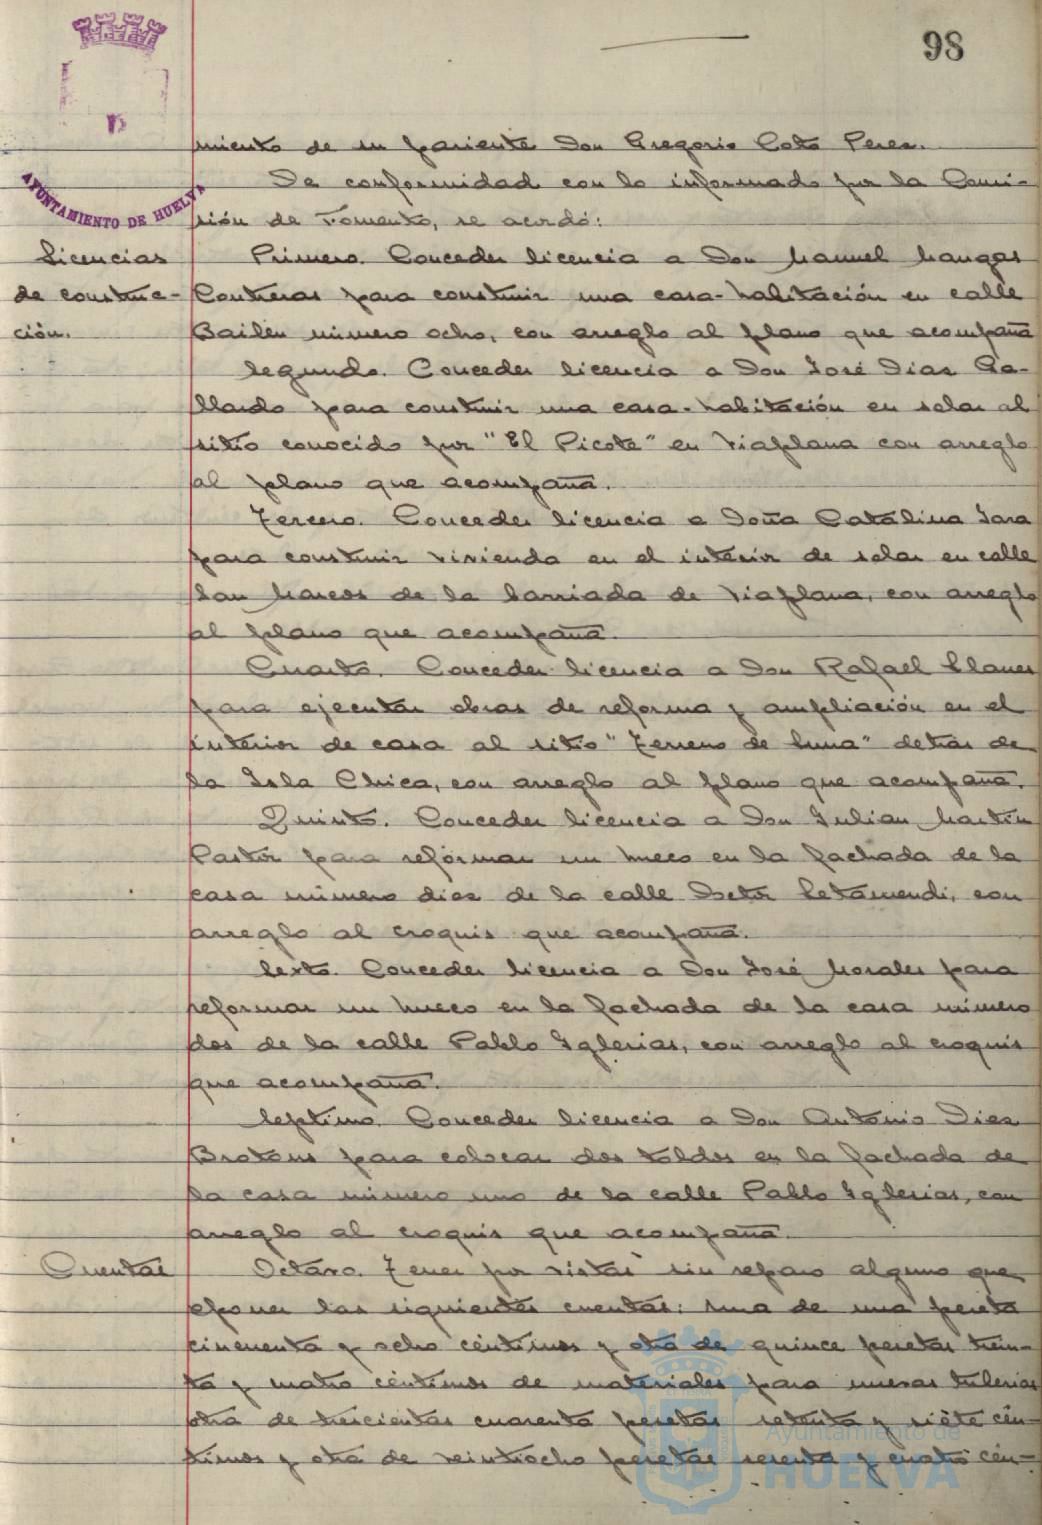 98
AYUNTAMIENTO DE HUELVA
miento de su pariente Don Gregorio Coto Perez.
De conformidad con lo informado por la Comi-
sión de Fomento, se acordó:
Licencias
de construc-
ción.
Primero. Conceder licencia a Don Manuel Mangas
Contreras para construir una casa-habitación en calle
Bailén número ocho, con arreglo al plano que acompaña
Segundo. Conceder licencia a Don José Diaz Ga-
llardo para construir una casa-habitación en solar al
sitio conocido por "El Picote" en Viaplana con arreglo
al plano que acompaña.
Tercero. Conceder licencia a Doña Catalina Jara
para construir vivienda en el interior de solar en calle
San Marcos de la barriada de Viaplana, con arreglo
al plano que acompaña.
Cuarto. Conceder licencia a Don Rafael Llanes
para ejecutar obras de reforma y ampliación en el
interior de casa al sitio "Terreno de Luna" detras de
la Isla Chica, con arreglo al plano que acompaña.
Quinto. Conceder licencia a Don Julian Martín
Pastor para reformar un hueco en la fachada de la
casa número diez de la calle Doctor Letamendi, con
arreglo al croquis que acompaña.
Sexto. Conceder licencia a Don José Morales para
reformar un hueco en la fachada de la casa número
dos de la calle Pablo Iglesias, con arreglo al croquis
que acompaña.
Septimo. Conceder licencia a Don Antonio Diez
Brotons para colocar dos toldos en la fachada de
la casa número uno de la calle Pablo Iglesias, con
arreglo al croquis que acompaña.
Cuentas
Octavo. Tener por vistas sin reparo alguno que
oponer las siguientes cuentas: una de una peseta
cincuenta y ocho céntimos y otra de quince pesetas trein-
ta y cuatro céntimos de materiales para nuevas tuberias
otra de trescientas cuarenta pesetas setenta y siete cén-
timos y otra de veintiocho pesetas sesenta y cuatro cén-
Ayuntamiento de
HUELVA